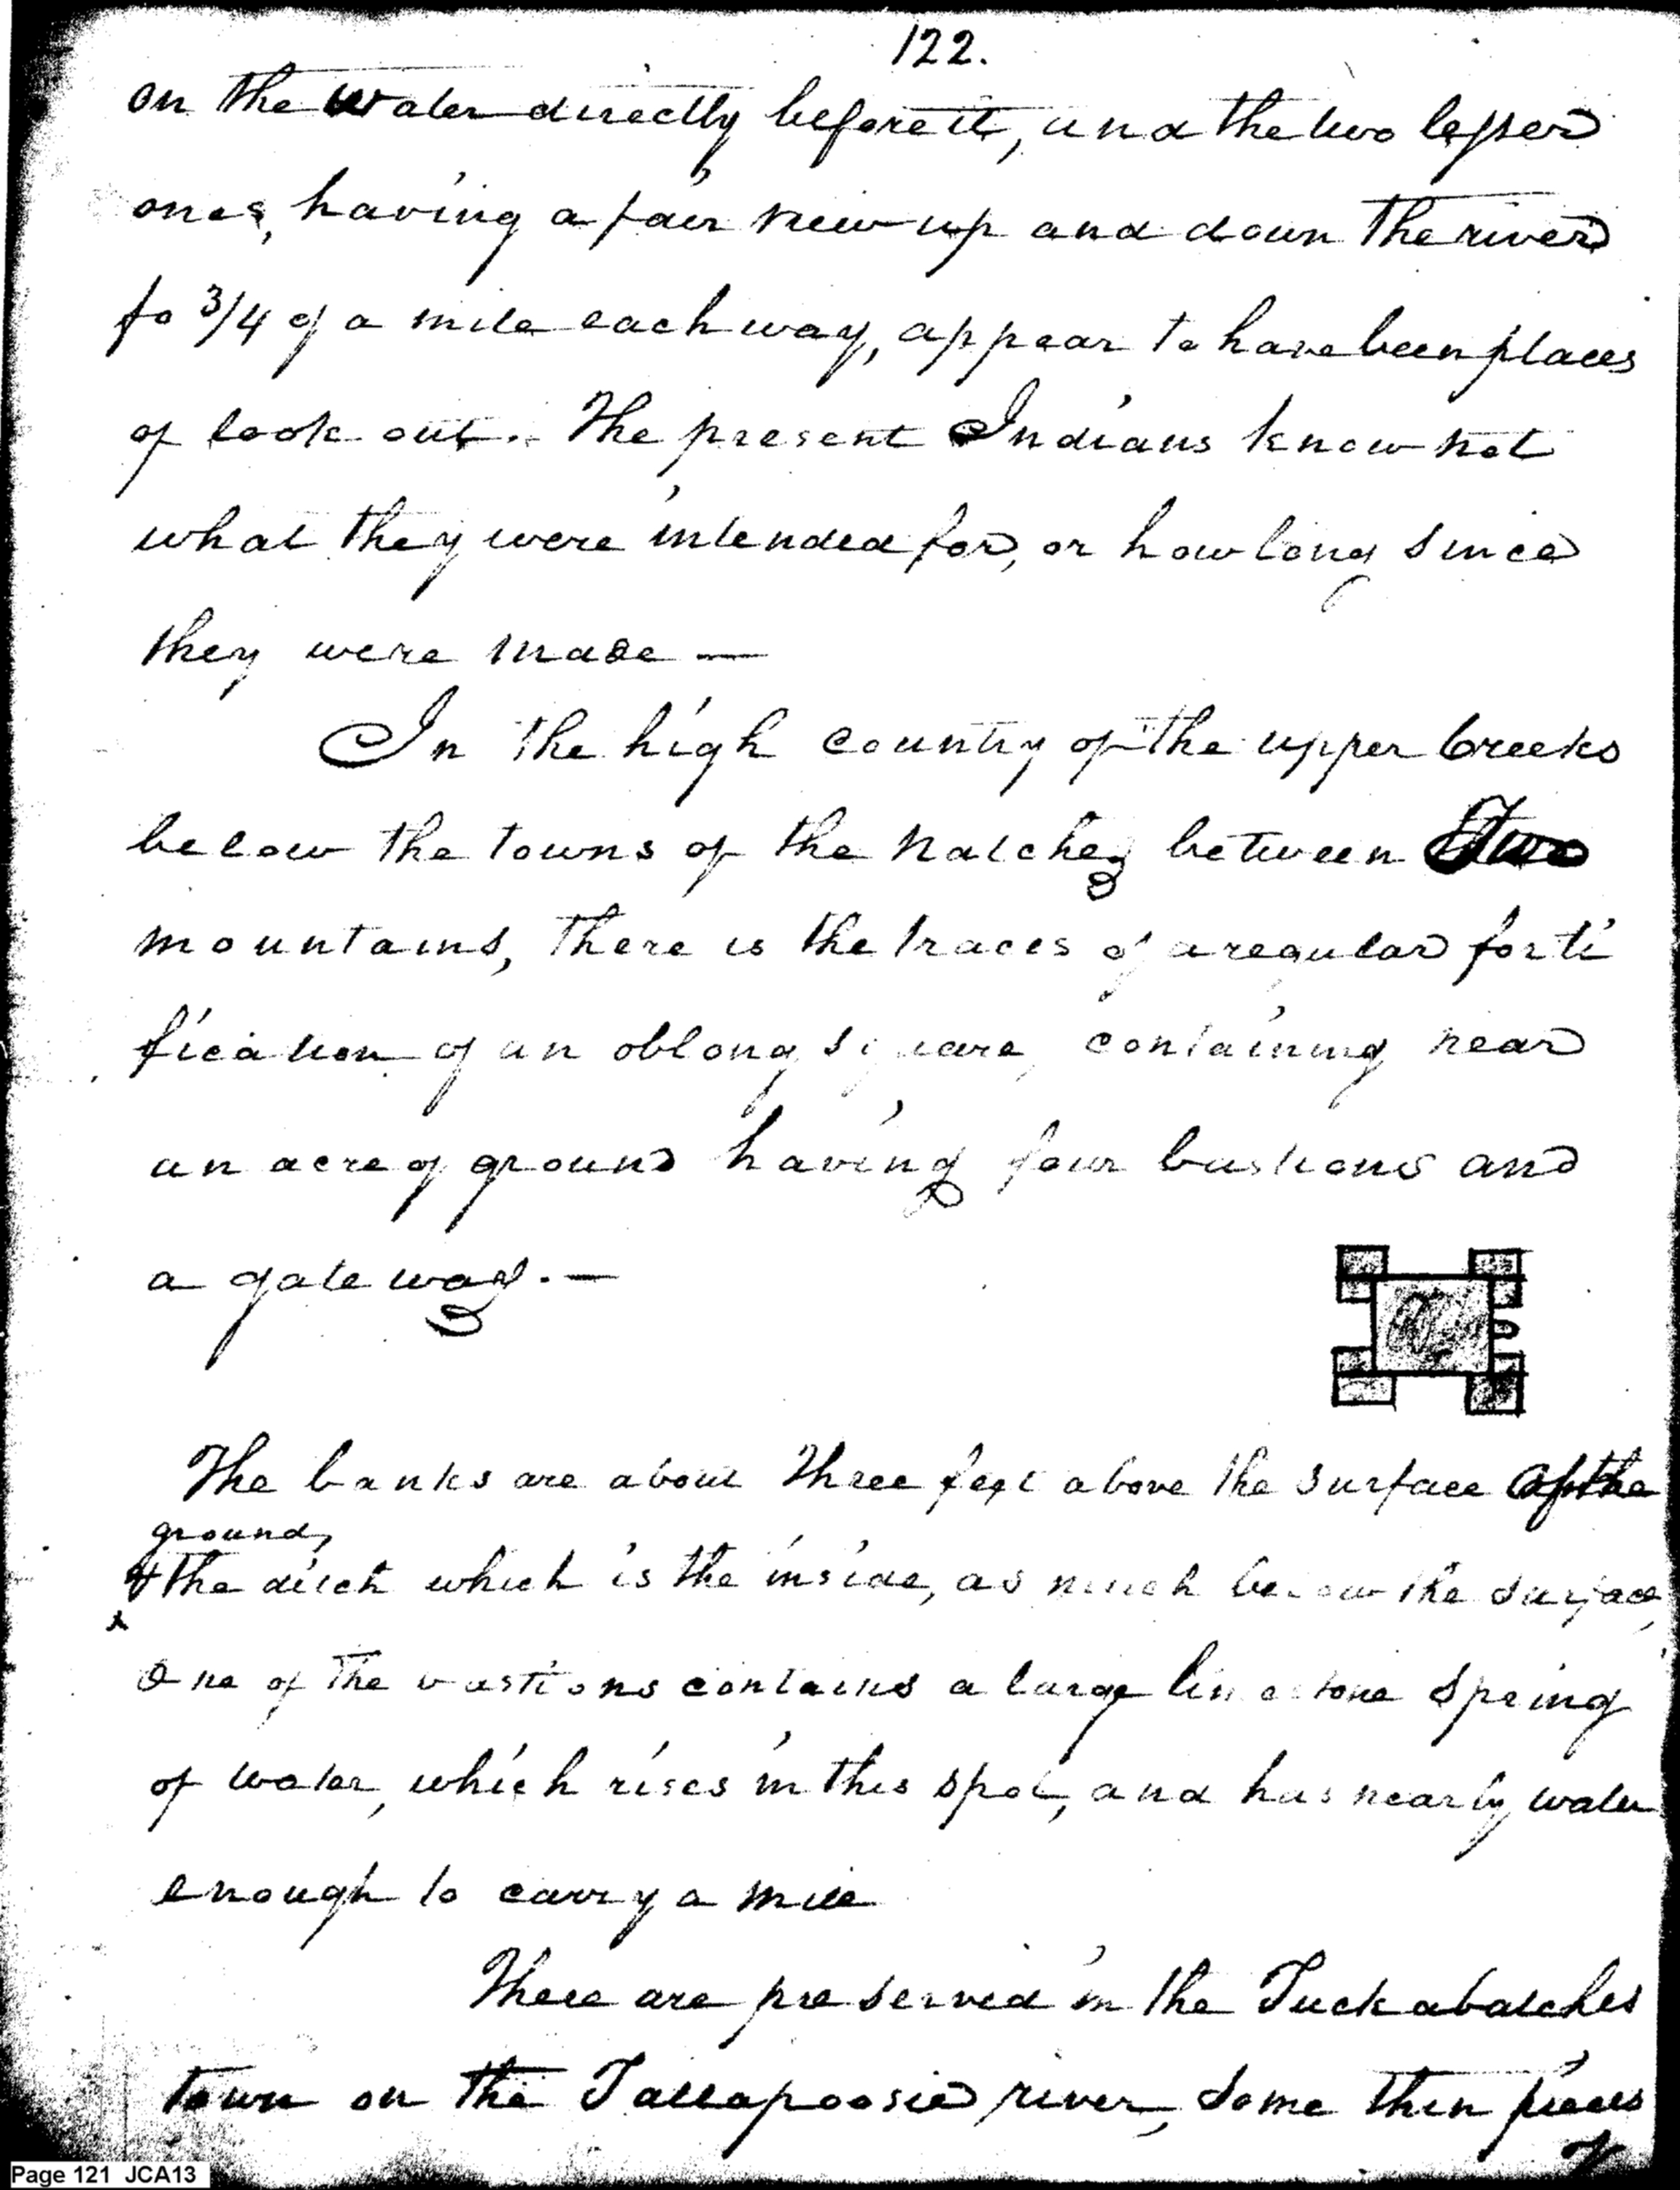 122.
on the water directly before it, and the two lesser
ones, having a fair view up and down the river
fo 3/4 of a mile each way, appear to have been places
of look out. The present Indians know not
what they were intended for, or how long since
they were made —
In the high country of the upper Creeks
below the towns of the Natchez between Two
mountains, there is the traces of a regular forti
fication of an oblong square, containing near
an acre of ground having four bastions and
a gate way. —
The banks are about three feet above the surface of the
ground,
& the ditch which is the inside, as much below the surface,
One of the bastions contains a large limestone spring
of water, which rises in this spot, and has nearly water
enough to carry a mill
There are preserved in the Tuckabatches
town on the Tallapoosie river, some thin pieces
Page 121 JCA13